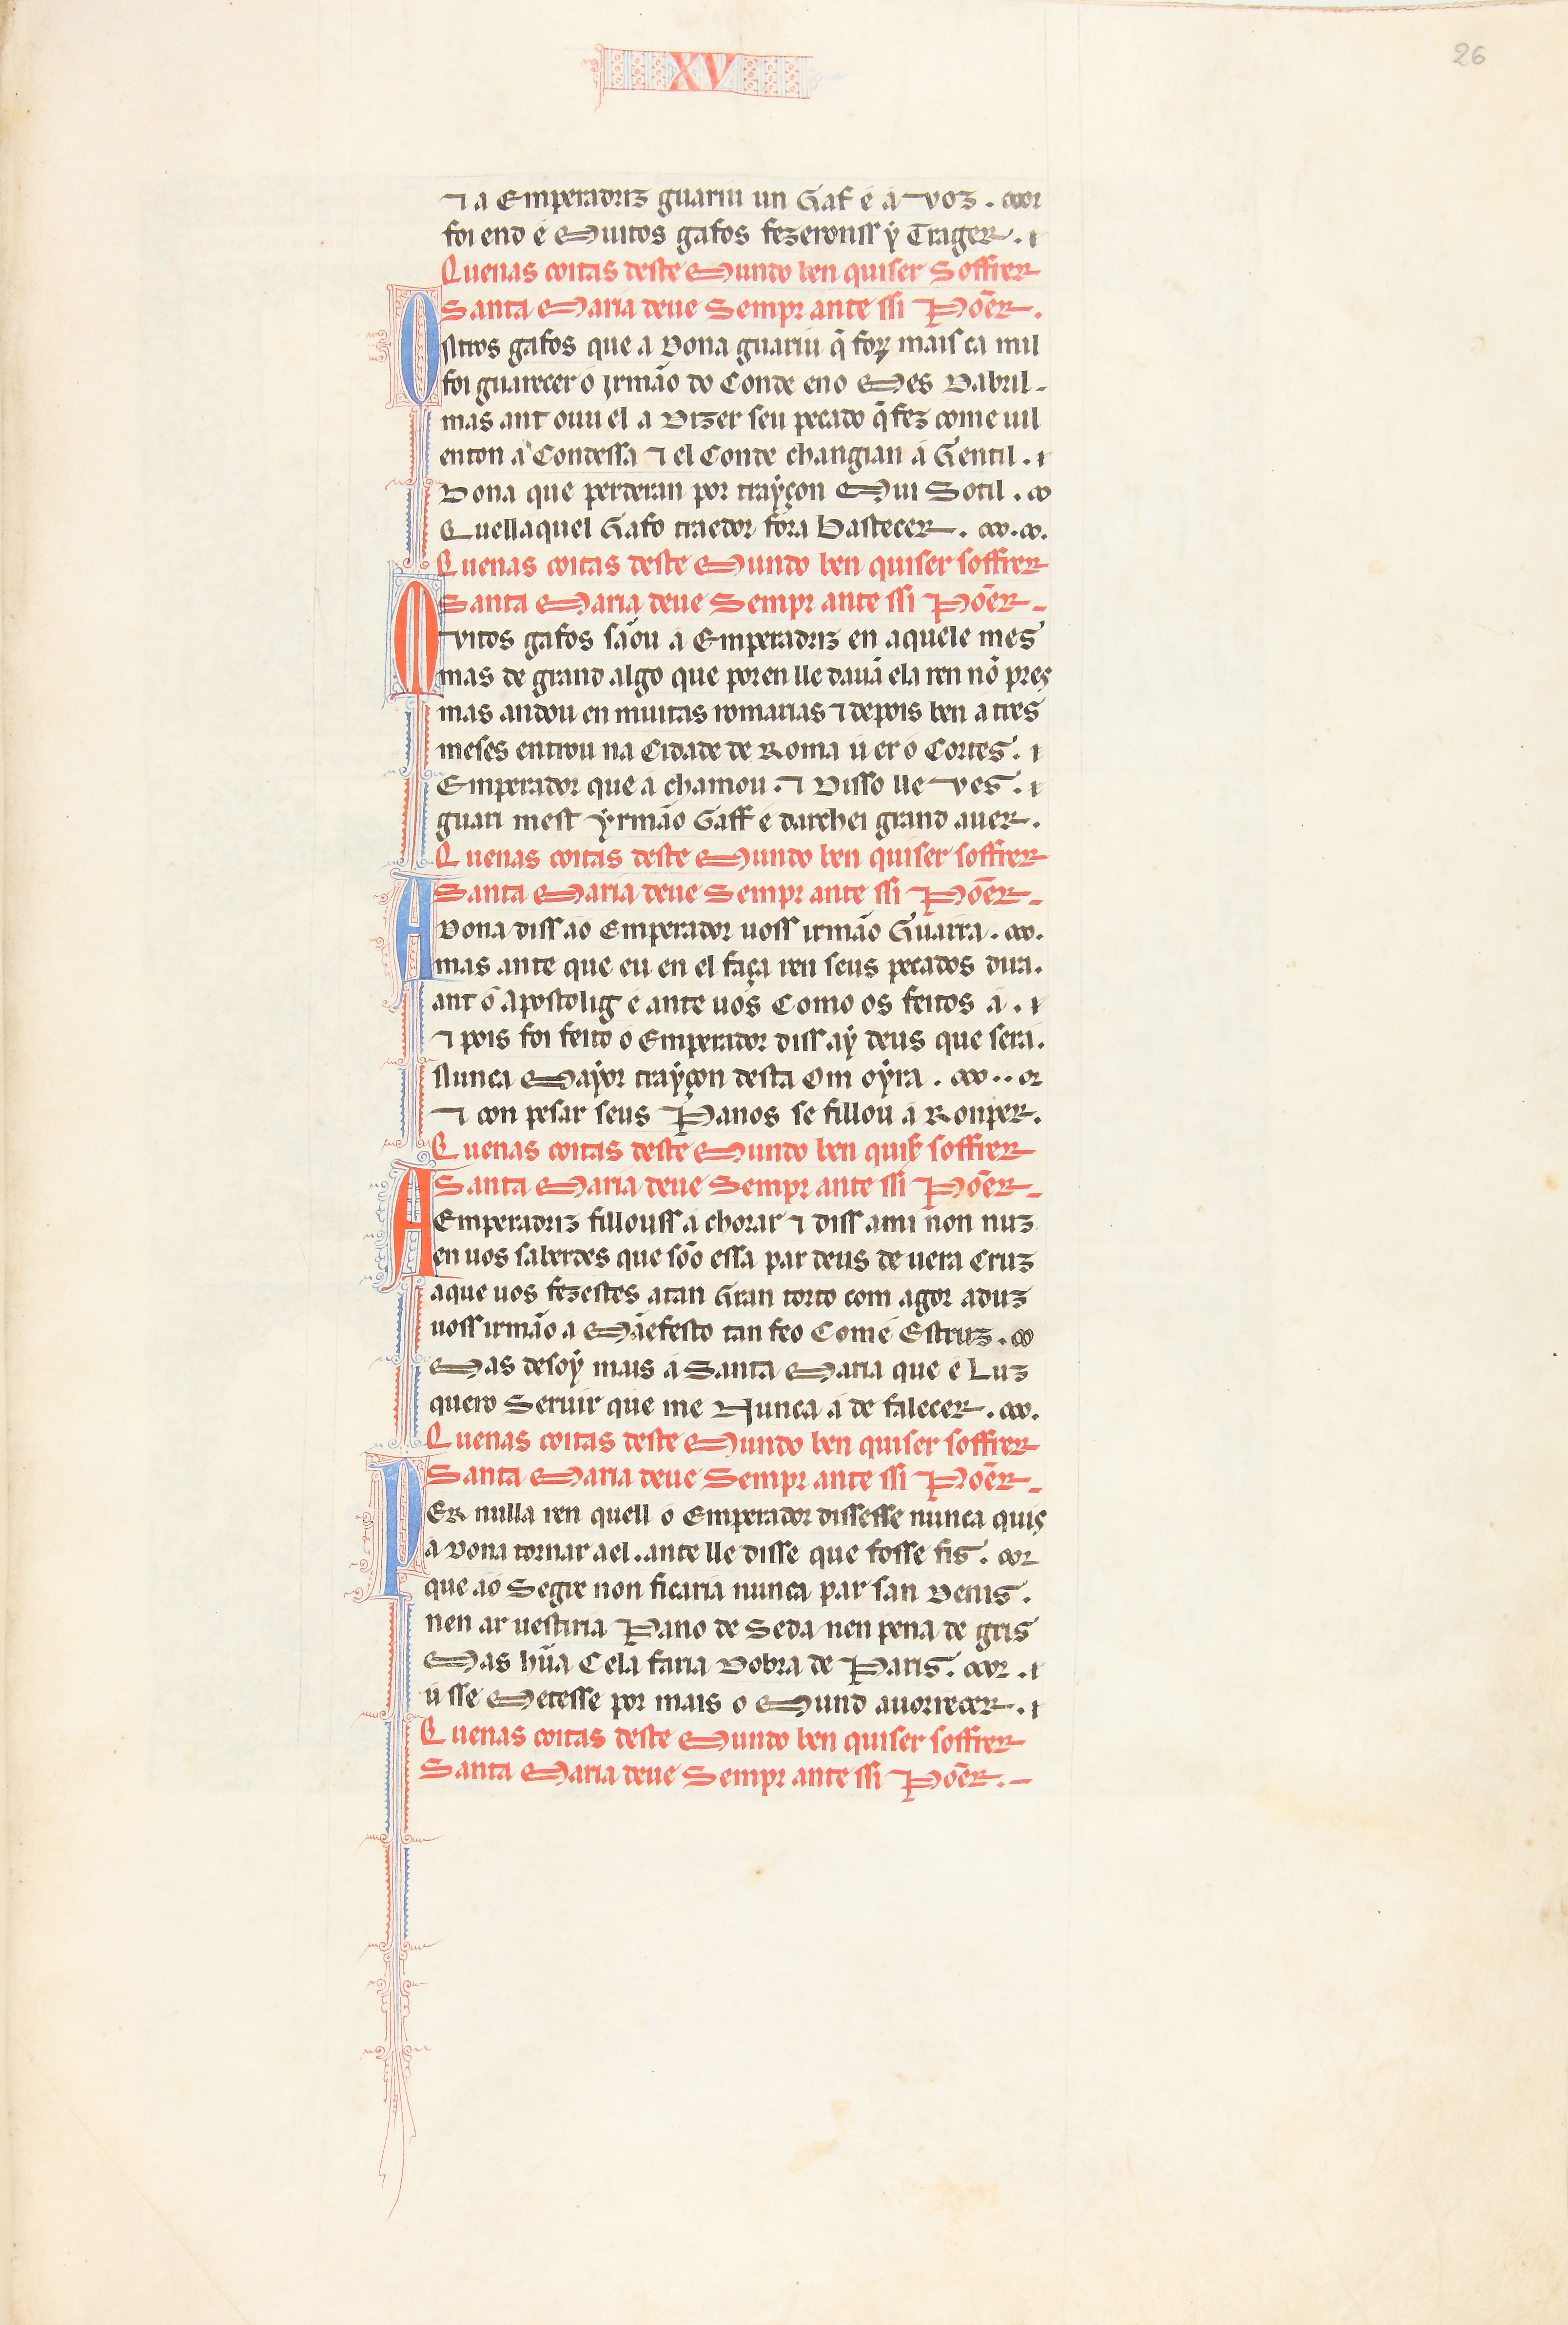 XV
26
⁊ a Emperadriz guariu un Gaf e a voz.
foi end e Muitos gafos fezeronss ẏ Trager.
Quenas coitas deste Mundo ben quiser Soffrer
Santa Maria deue Sempr ante ssi Põer.
Ontros gafos que a Dona guariu q̃ foꝝ mais ca mil
foi guarecer o Jrmão do Conde eno Mes Dabril.
mas ant ouu el a Dizer seu pecado q̃ fez come uil
enton a Condessa ⁊ el Conde changian a Gentil.
Dona que perderan por trayçon Mui Sotil.
Quellaquel Gafo traedor fora Bastecer.
Quenas coitas deste Mundo ben quiser soffrer
Santa Maria deue Sempr ante ssi Põer.
Mvitos gafos sãou a Emperadriz en aquele mes
mas de grand algo que poren lle dauã ela ren nõ pres
mas andou en muitas romarias ⁊ depois ben a tres
meses entrou na Cidade de Roma ú er o Cortes.
Emperador que a chamou. ⁊ Disso lle ves.
guari mest yrmão Gaff e darchei grand auer.
Quenas coitas deste Mundo ben quiser soffrer
Santa Maria deue Sempr ante ssi Põer.
A Dona diss ao Emperador uoss irmão Guarra.
mas ante que eu en el faça ren seus pecados dira.
ant o Apostolig e ante uos Como os feitos a.
⁊ pois foi feito o Emperador diss aẏ deus que sera.
Nunca Mayor trayçon desta Om oyra.
⁊ con pesar seus Panos se fillou a Ronper.
Quenas coitas deste Mundo ben quis̉ soffrer
Santa Maria deue Sempr ante ssi Põer.
A Emperadriz fillouss a chorar ⁊ diss a mi non nuz
en uos saberdes que sõo essa par deus de uera Cruz
a que uos fezestes atan Gran torto com agor aduz
uoss irmão a Mãefesto tan feo Come Estruz.
Mas desoẏ mais a Santa Maria que e Luz
quero Seruir que me Nunca a de falecer.
Quenas coitas deste Mundo ben quiser soffrer
Santa Maria deue Sempr ante ssi Põer.
PER nulla ren quell o Emperador dissesse nunca quis
a Dona tornar a el. ante lle disse que fosse fis.
que ao Segre non ficaria nunca par san Denis.
nen ar uestiria Pano de Seda nen pena de gris
Mas hũa Cela faria Dobra de Paris.
ú sse Metesse por mais o Mund auorrecer.
Quenas coitas deste Mundo ben quiser soffrer
Santa Maria deue Sempr ante ssi Põer.